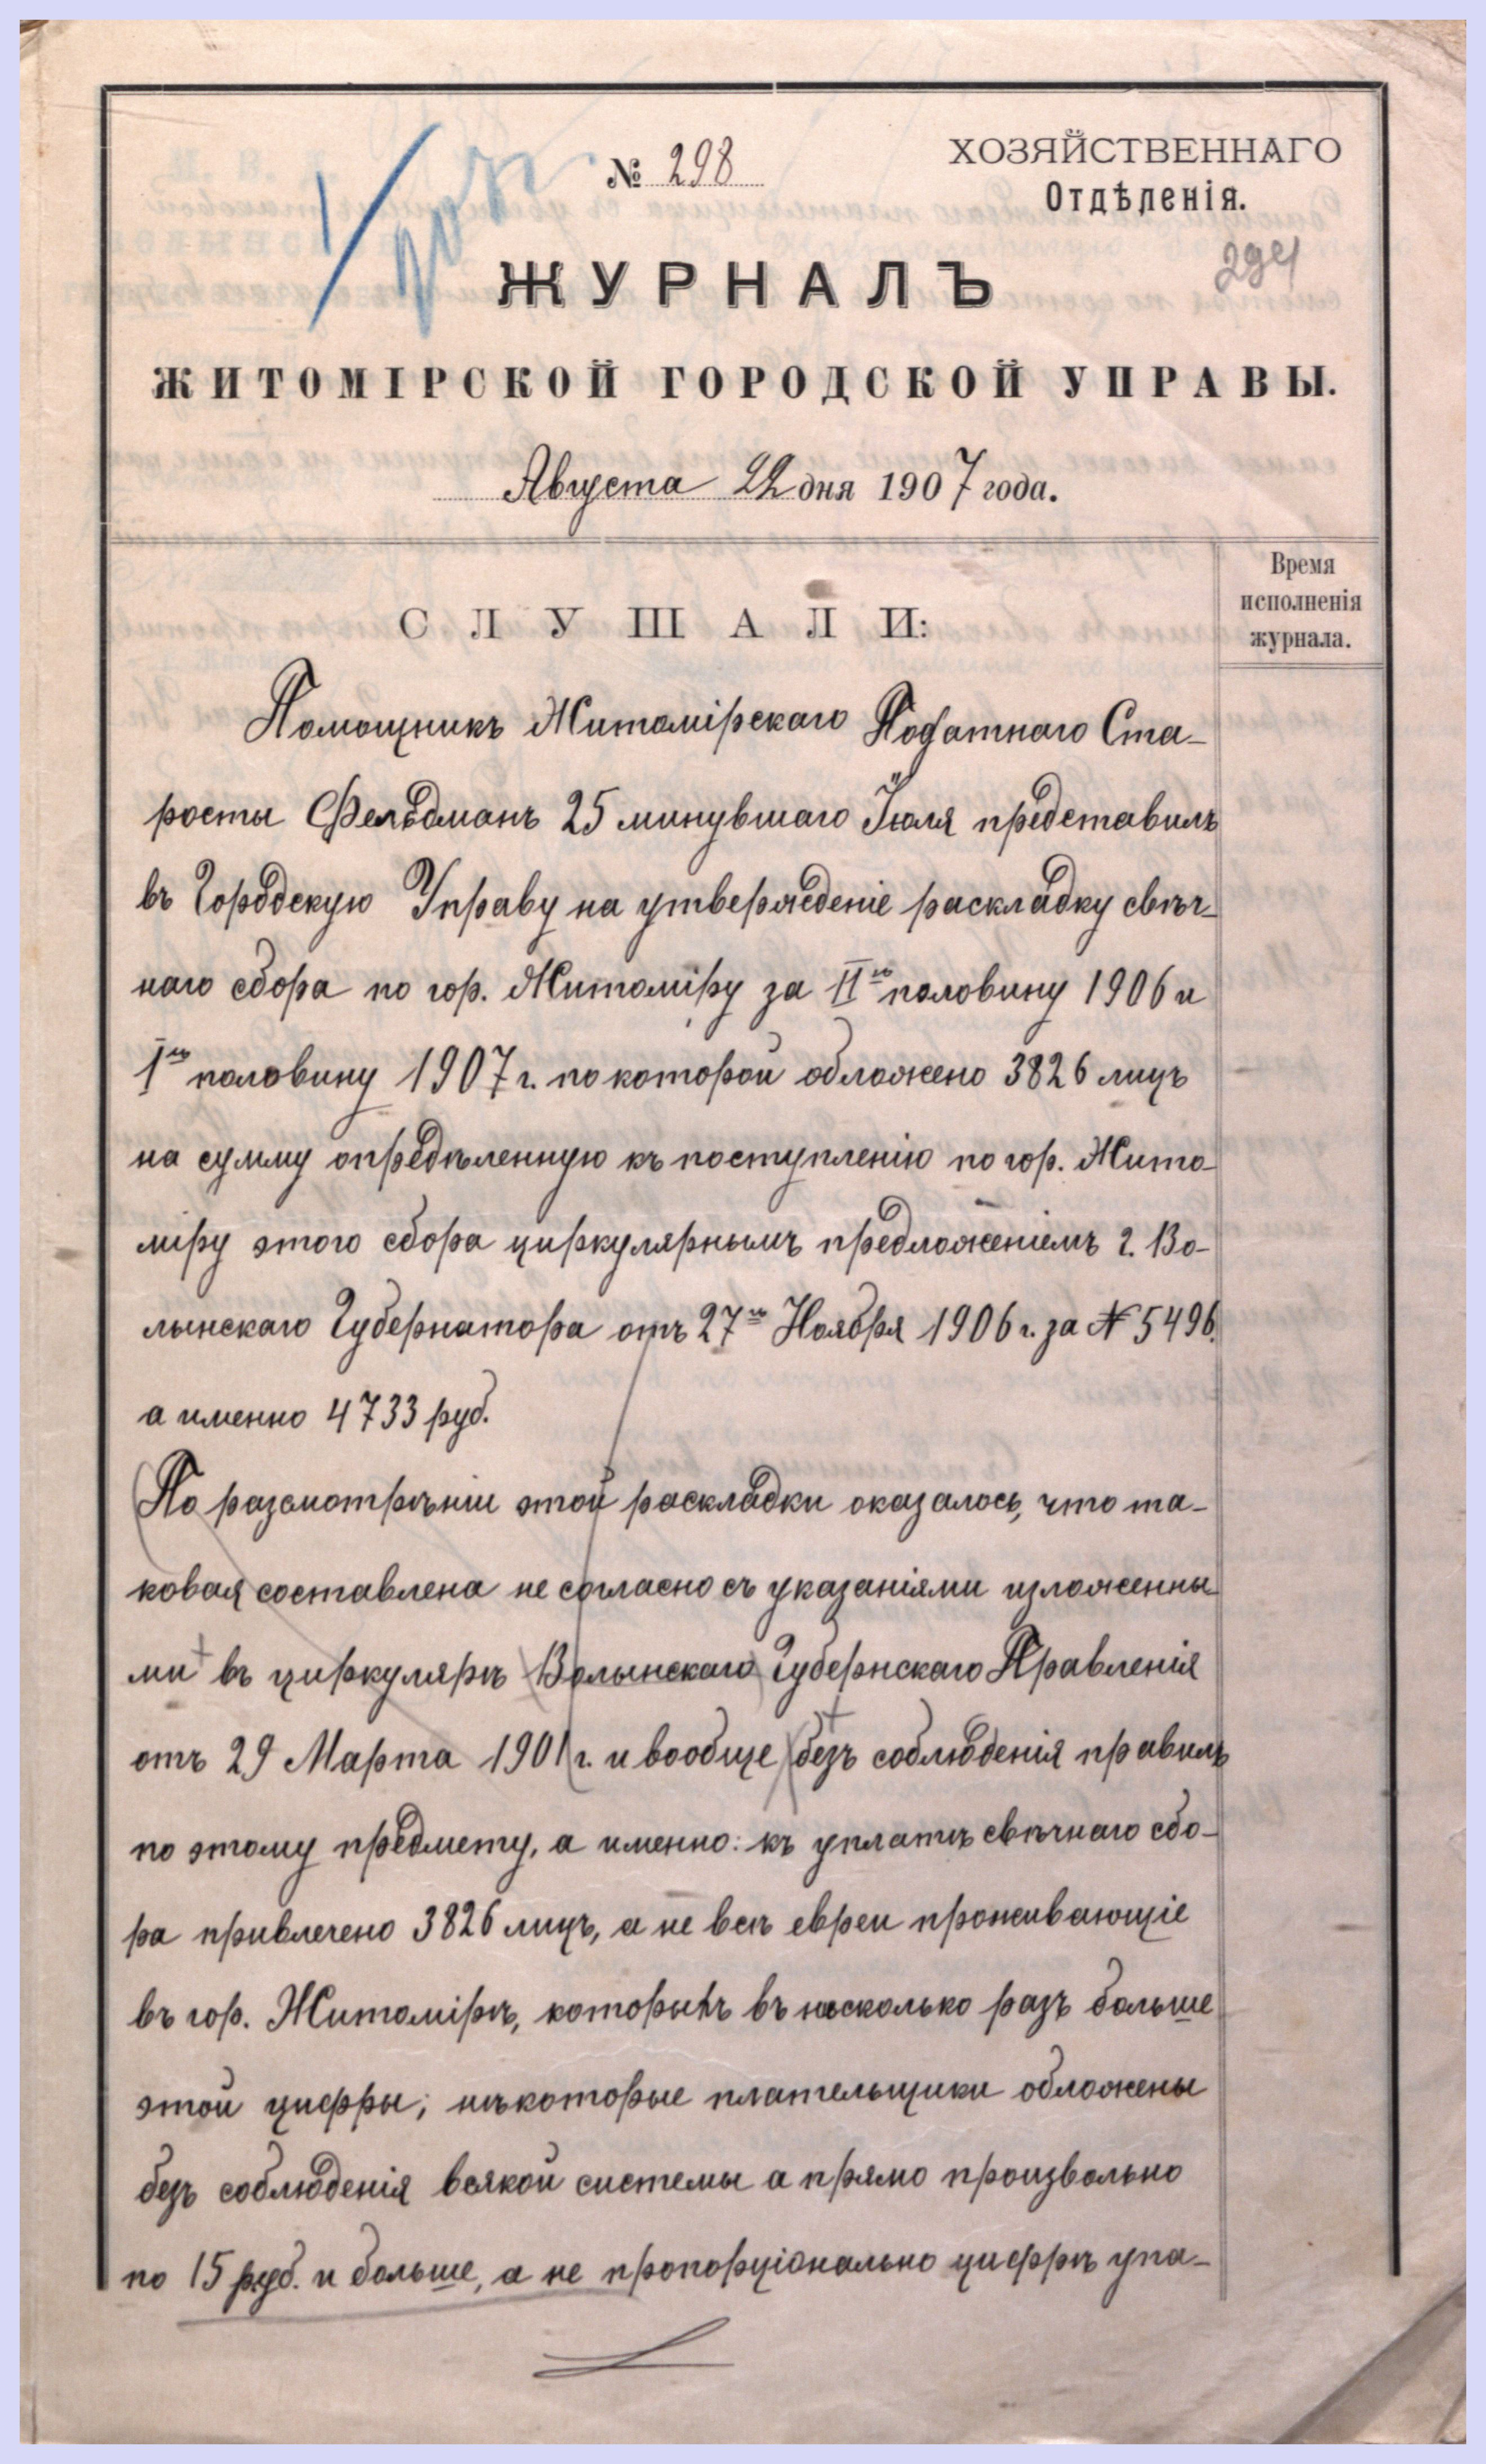 № 298
ХОЗЯЙСТВЕННАГО
Отдѣленія.
294
ЖУРНАЛЪ
ЖИТОМІРСКОЙ ГОРОДСКОЙ УПРАВЫ.
Августа 22 дня 1907 года.
Время
исполненія
журнала.
СЛУШАЛИ:
Помощникъ Житомірскаго Податнаго Ста-
росты Фельдманъ 25 минувшаго Іюля представилъ
въ Городскую Управу на утвержденіе раскладку свѣч-
наго сбора по гор. Житоміру за II ю половину 1906 и
I ю половину 1907 г. по которой обложено 3826 лицъ
на сумму опредѣленную къ поступленію по гор. Жито-
міру этого сбора циркулярнымъ предложеніемъ г. Во-
лынскаго Губернатора отъ 27 го Ноября 1906 г. за № 5496.
а именно 4733 руб.
(По разсмотрѣніи этой раскладки оказалось, что та-
ковая составлена не согласно съ указаніями изложенны-
ми въ циркулярѣ Волынскаго Губернскаго Правленія
отъ 29 Марта 1901 г. и вообще безъ соблюденія правилъ
по этому предмету, а именно: къ уплатѣ свѣчнаго сбо-
ра привлечено 3826 лицъ, а не всѣ евреи проживающіе
въ гор. Житомірѣ, которыхъ въ нѣсколько разъ больше
этой цифры; нѣкоторые плательщики обложены
безъ соблюденія всякой системы а прямо произвольно
по 15 руб. и больше, а не пропорціонально цифрѣ упа-